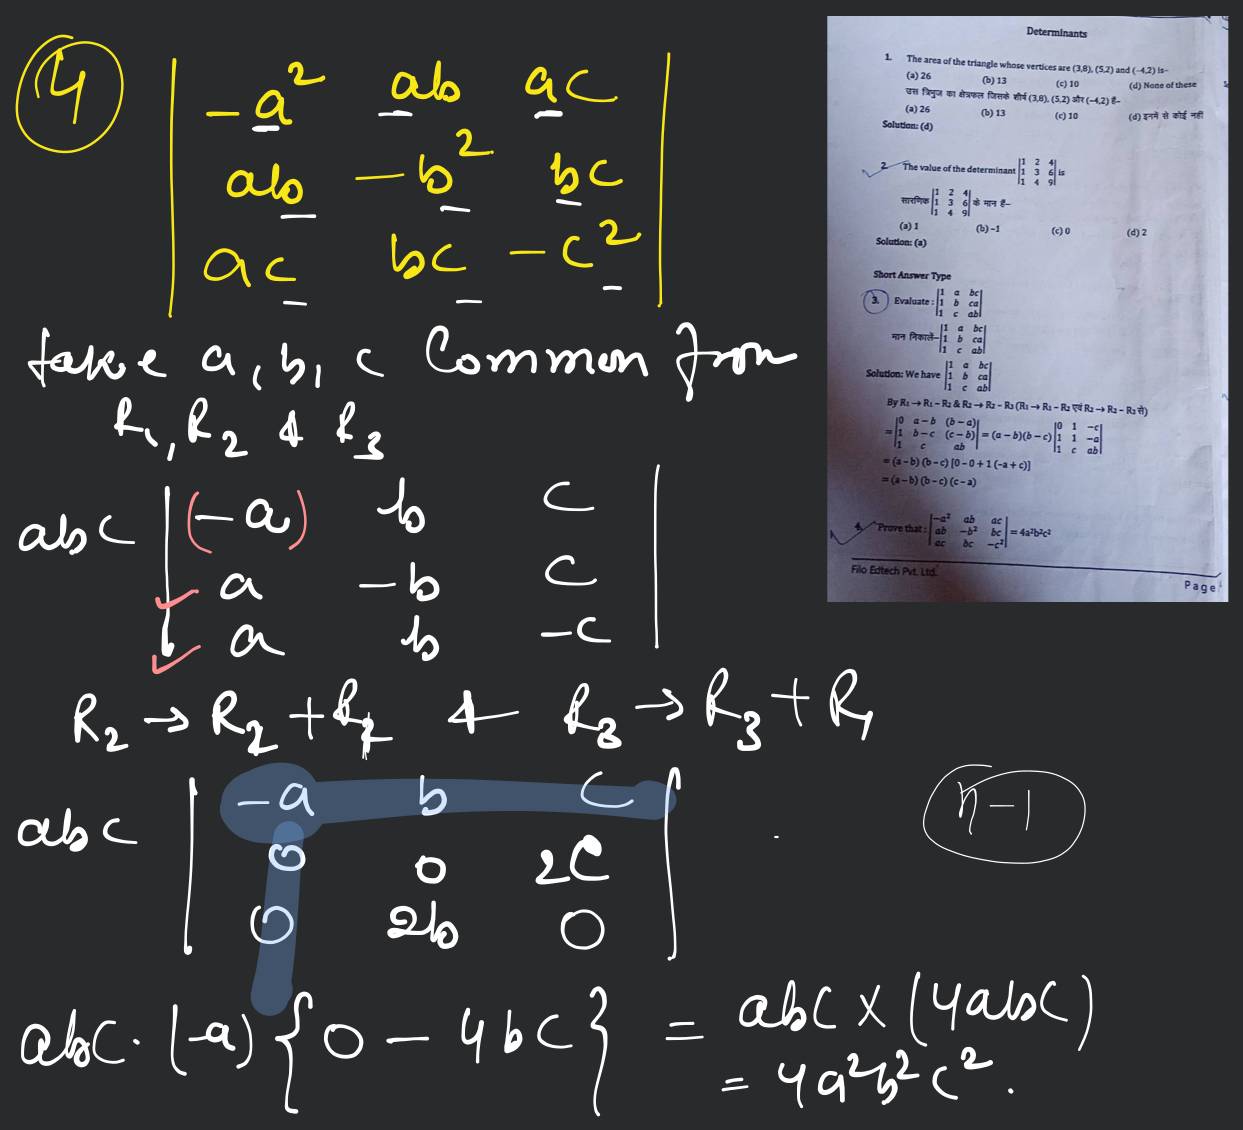 4
-a² ab ac
ab -b² bc
ac bc -c²
take a, b, c Common from
R₁, R₂ & R₃
abc (-a) b c
a -b c
a b -c
R₂ → R₂ + R₁ & R₃ → R₃ + R₁
abc -a b c
0 0 2c
0 2b 0
n-1
abc · (-a) {0 - 4bc} = abc × (4abc)
= 4a²b²c².
Determinants
1. The area of the triangle whose vertices are (3,8), (5,2) and (-4,2) is-
(a) 26 (b) 13 (c) 10 (d) None of these
उस त्रिभुज का क्षेत्रफल जिसके शीर्ष (3,8), (5,2) और (-4,2) हैं-
(a) 26 (b) 13 (c) 10 (d) इनमें से कोई नहीं
Solution: (d)
2. The value of the determinant |1 2 4| is
|1 3 6|
|1 4 9|
सारणिक |1 2 4| के मान हैं-
|1 3 6|
|1 4 9|
(a) 1 (b) -1 (c) 0 (d) 2
Solution: (a)
Short Answer Type
3. Evaluate : |1 a bc|
|1 b ca|
|1 c ab|
मान निकालें- |1 a bc|
|1 b ca|
|1 c ab|
Solution: We have |1 a bc|
|1 b ca|
|1 c ab|
By R₁ → R₁ - R₂ & R₂ → R₂ - R₃ (R₁ → R₁ - R₂ एवं R₂ → R₂ - R₃ से)
= |0 a-b (b-a)| = (a-b)(b-c) |0 1 -c|
|1 b-c (c-b)| |1 1 -a|
|1 c ab| |1 c ab|
= (a-b) (b-c) [0-0+1 (-a+c)]
= (a-b) (b-c) (c-a)
4. Prove that : |-a² ab ac| = 4a²b²c²
|ab -b² bc|
|ac bc -c²|
Filo Edtech Pvt. Ltd.
Page